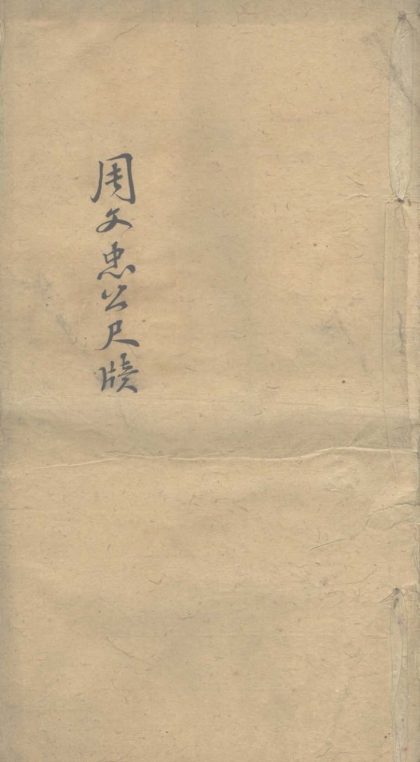 周文忠公尺牘